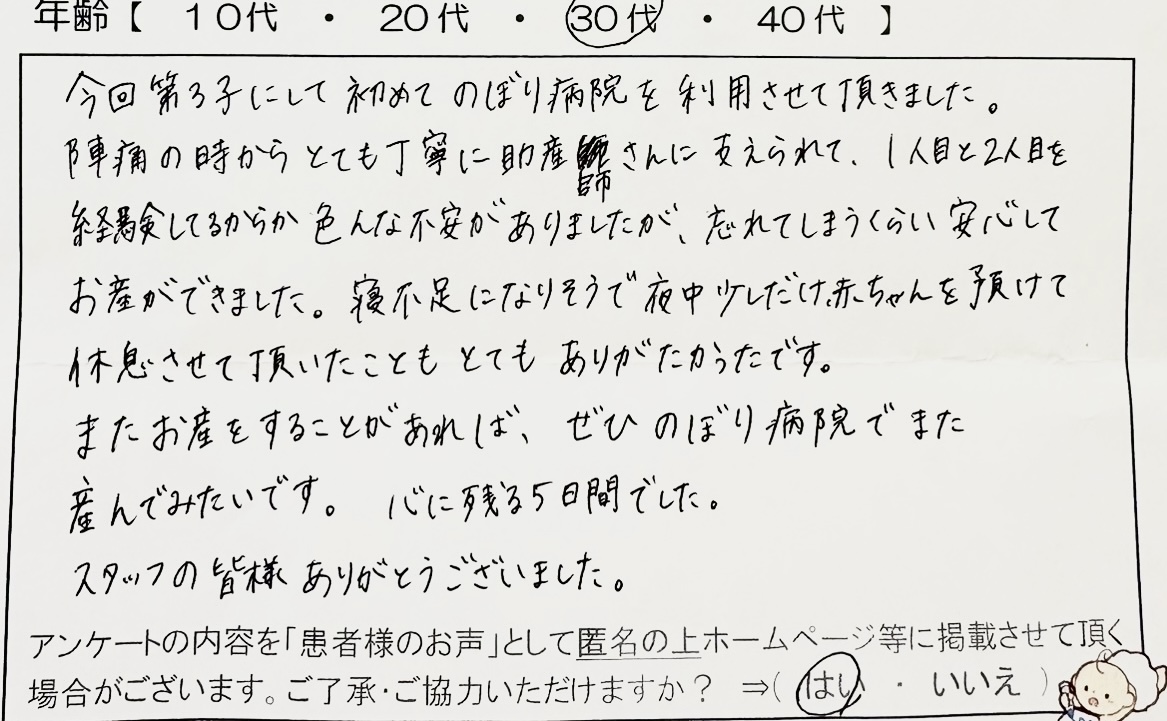 年齢【 10代 ・ 20代 ・ 30代 ・ 40代 】
今回 第3子にして 初めて のぼり病院を 利用させて頂きました。
陣痛の時からとても丁寧に助産師さんに支えられて、1人目と2人目を
経験してるからか 色んな不安がありましたが、忘れてしまうくらい 安心して
お産ができました。寝不足になりそうで夜中少しだけ赤ちゃんを預けて
休息させて頂いたことも とても ありがたかったです。
またお産をすることがあれば、ぜひ のぼり病院でまた
産んでみたいです。 心に残る5日間でした。
スタッフの皆様 ありがとうございました。
アンケートの内容を「患者様のお声」として匿名の上ホームページ等に掲載させて頂く
場合がございます。ご了承・ご協力いただけますか？ ⇒( はい ・ いいえ )